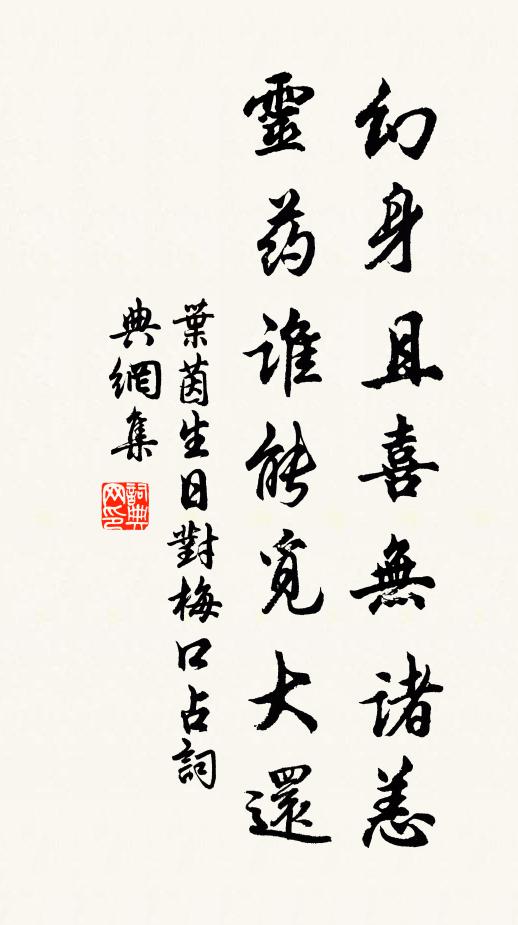 幻身且喜無諸恙
靈药誰能覓大還
葉茵生日對梅口占詞
典網集
詞典網印